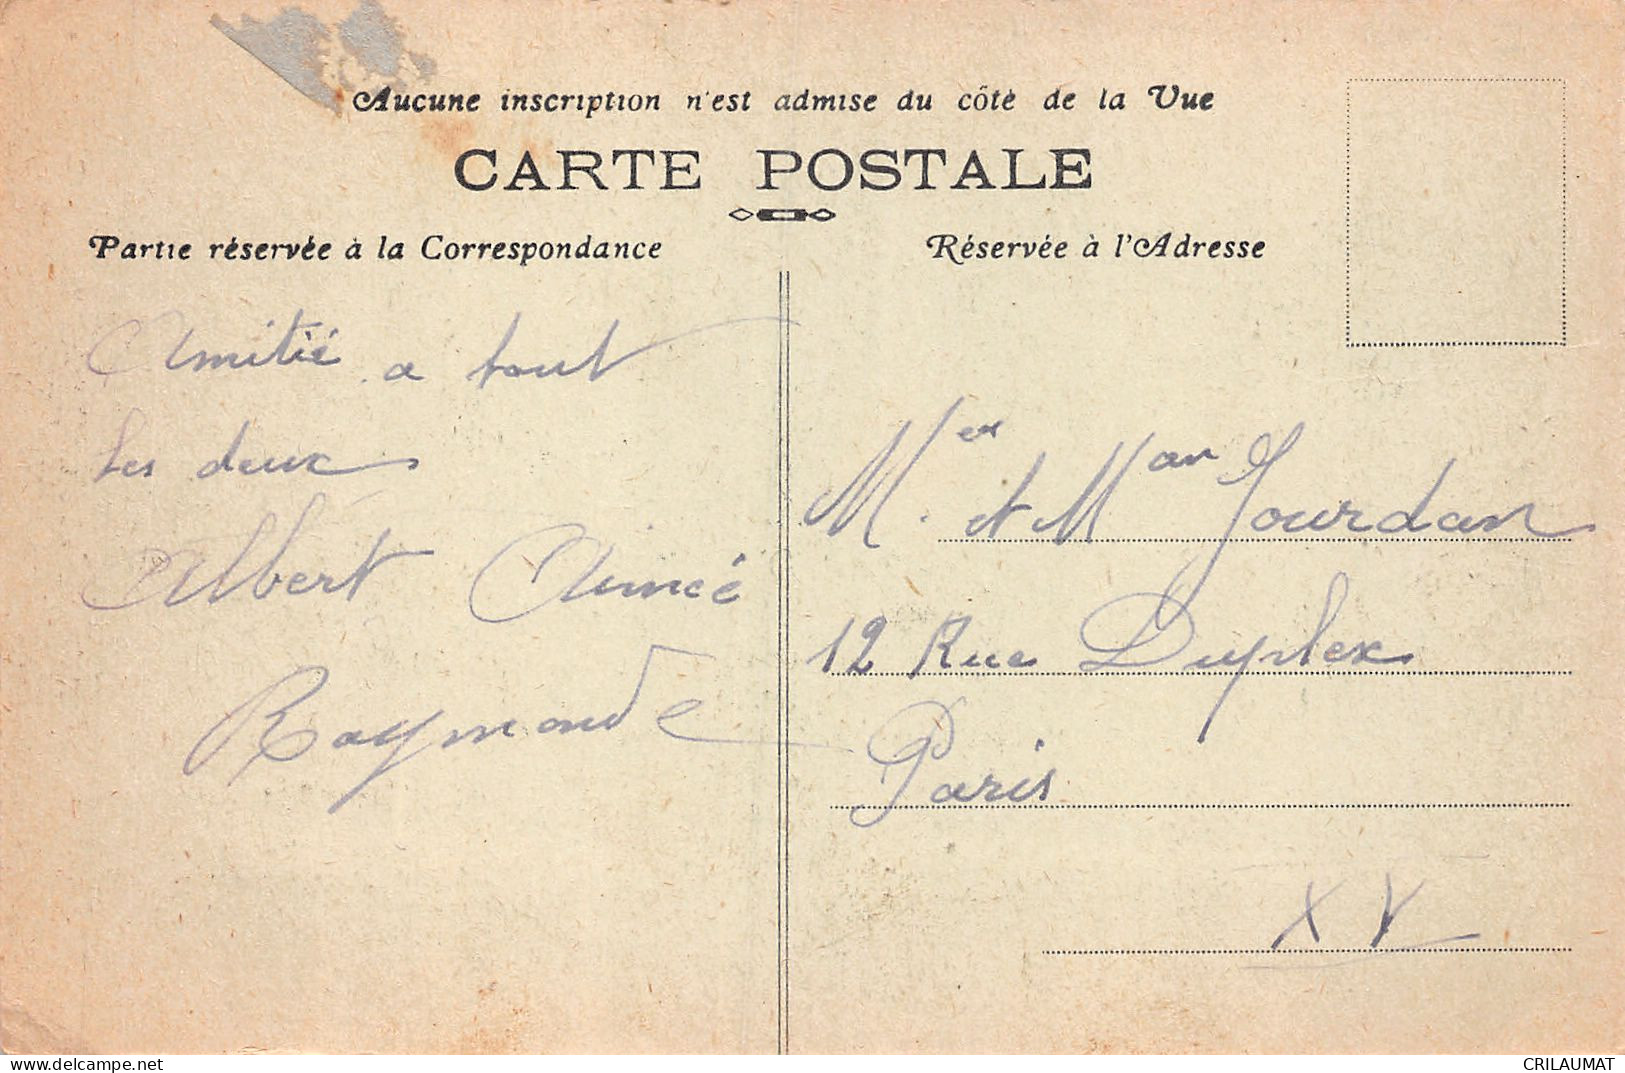 Aucune inscription n'est admise du côté de la Vue
CARTE POSTALE
Partie réservée à la Correspondance
Réservée à l'Adresse
Amitié a tout
les deux
Albert Aimée
Raymonde
Mer et Man Jourdan
12 Rue Duplex
Paris
XV
CRILAUMAT